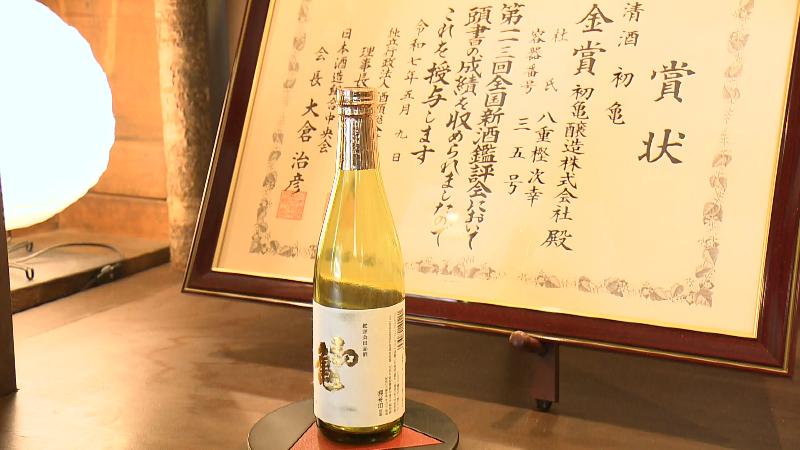 賞状
清酒 初亀
金賞 初亀醸造株式会社 殿
杜氏 八重樫次幸
容器番号 三五号
第一一三回全国新酒鑑評会において
頭書の成績を収められましたので
これを授与します
令和七年五月九日
独立行政法人酒類総合
理事長
日本酒造組合中央会
会長 大倉治彦
初亀